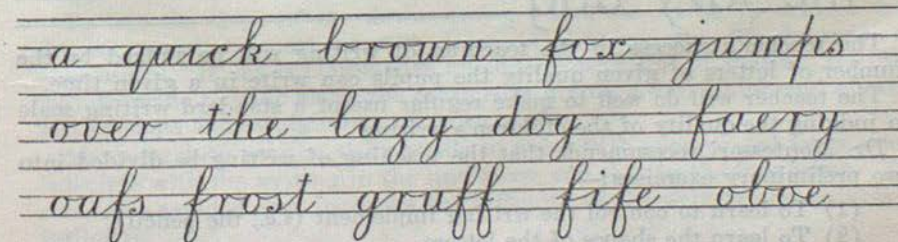 a quick brown fox jumps
over the lazy dog faery
oafs frost gruff fife oboe